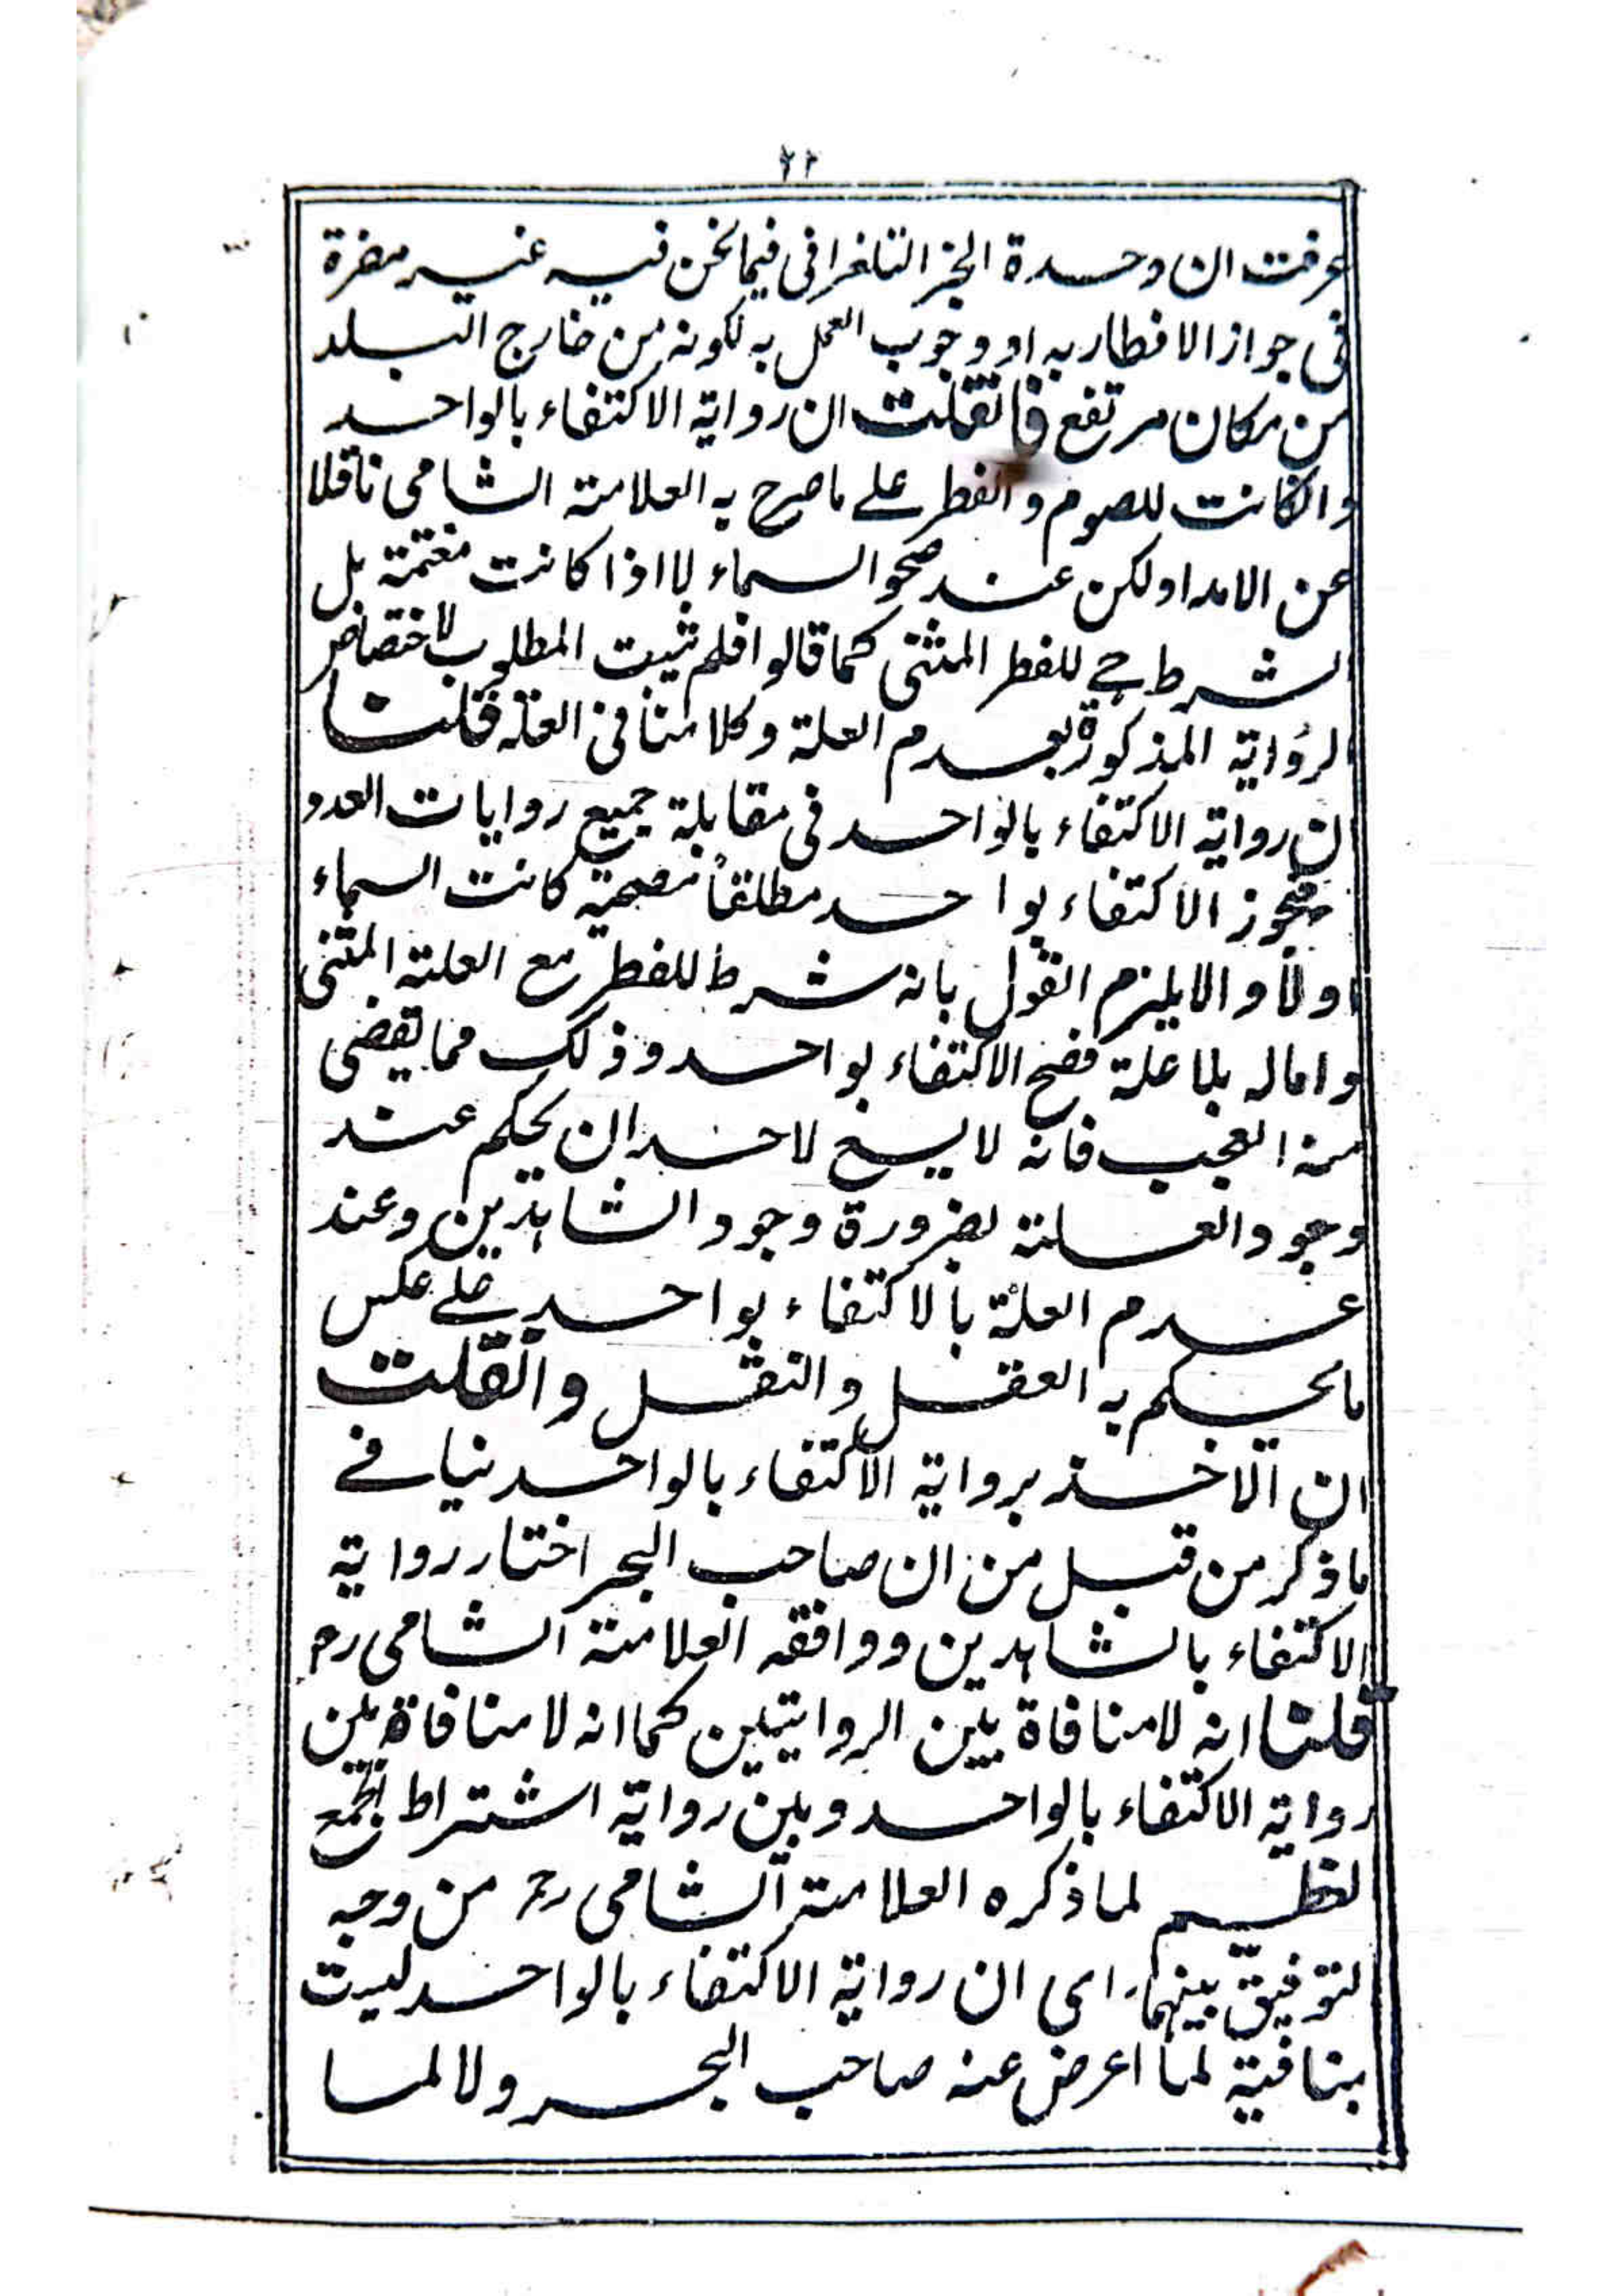 ٢٢
عرفت ان وحدة الخبر التلغرافى فيما نحن فيه غير مضرة
فى جواز الافطار به او وجوب العمل به لكونه من خارج البلد
من مكان مرتفع فان قلت ان رواية الاكتفاء بالواحد
وان كانت للصوم والفطر على ما صرح به العلامة الشامى ناقلا
عن الامداد لكن عند صحو السماء لا اذا كانت مغتمة بل
الشرط ح للفطر المثنى كما قالوا فلم يثبت المطلوب لاختصاص
الرواية المذكورة بعدم العلة وكلامنا فى العلة قلنا
ان رواية الاكتفاء بالواحد فى مقابلة جميع روايات العدد
فيجوز الاكتفاء بواحد مطلقاً مصحية كانت السماء
او لا والا يلزم القول بانه شرط للفطر مع العلة المثنى
واما له بلا علة فصح الاكتفاء بواحد وذلك مما يقضى
منه العجب فانه لا يسع لاحد ان يحكم عند
وجود العلة بضرورة وجود الشاهدين وعند
عدم العلة بالاكتفاء بواحد على عكس
ما يحكم به العقل والنقل وان قلت
ان الاخذ برواية الاكتفاء بالواحد ينافى
ما ذكر من قبل من ان صاحب البحر اختار رواية
الاكتفاء بالشاهدين ووافقه العلامة الشامى رح
قلنا انه لا منافاة بين الروايتين كما انه لا منافاة بين
رواية الاكتفاء بالواحد وبين رواية اشتراط الجمع
العظيم لما ذكره العلامة الشامى رح من وجه
التوفيق بينهما اى ان رواية الاكتفاء بالواحد ليست
بنافية لما اعرض عنه صاحب البحر ولا لما